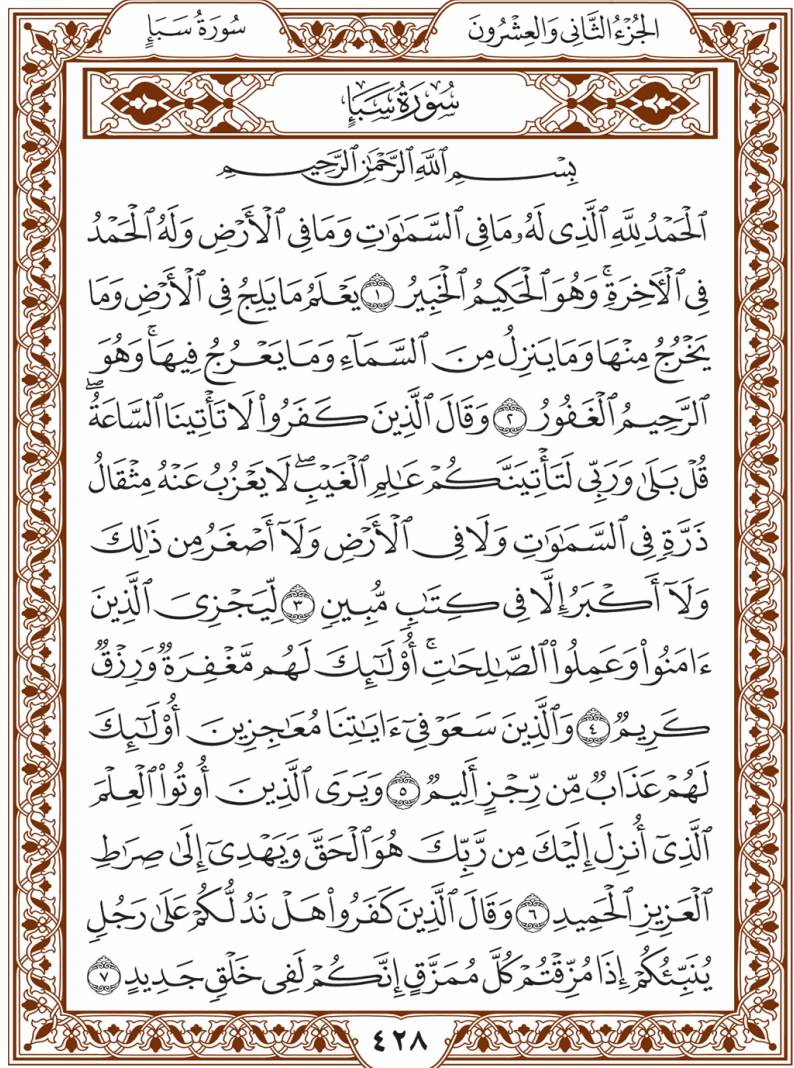 الجُزْءُ الثَّانِي وَالعِشْرُونَ
سُورَةُ سَبَإٍ
سُورَةُ سَبَإٍ
بِسْمِ ٱللَّهِ ٱلرَّحْمَٰنِ ٱلرَّحِيمِ
ٱلْحَمْدُ لِلَّهِ ٱلَّذِى لَهُۥ مَا فِى ٱلسَّمَٰوَٰتِ وَمَا فِى ٱلْأَرْضِ وَلَهُ ٱلْحَمْدُ
فِى ٱلْءَاخِرَةِ ۚ وَهُوَ ٱلْحَكِيمُ ٱلْخَبِيرُ ١ يَعْلَمُ مَا يَلِجُ فِى ٱلْأَرْضِ وَمَا
يَخْرُجُ مِنْهَا وَمَا يَنزِلُ مِنَ ٱلسَّمَآءِ وَمَا يَعْرُجُ فِيهَا ۚ وَهُوَ
ٱلرَّحِيمُ ٱلْغَفُورُ ٢ وَقَالَ ٱلَّذِينَ كَفَرُوا۟ لَا تَأْتِينَا ٱلسَّاعَةُ ۖ
قُلْ بَلَىٰ وَرَبِّى لَتَأْتِيَنَّكُمْ عَٰلِمِ ٱلْغَيْبِ ۖ لَا يَعْزُبُ عَنْهُ مِثْقَالُ
ذَرَّةٍ فِى ٱلسَّمَٰوَٰتِ وَلَا فِى ٱلْأَرْضِ وَلَآ أَصْغَرُ مِن ذَٰلِكَ
وَلَآ أَكْبَرُ إِلَّا فِى كِتَٰبٍ مُّبِينٍ ٣ لِّيَجْزِىَ ٱلَّذِينَ
ءَامَنُوا۟ وَعَمِلُوا۟ ٱلصَّٰلِحَٰتِ ۚ أُو۟لَٰٓئِكَ لَهُم مَّغْفِرَةٌ وَرِزْقٌ
كَرِيمٌ ٤ وَٱلَّذِينَ سَعَوْ فِىٓ ءَايَٰتِنَا مُعَٰجِزِينَ أُو۟لَٰٓئِكَ
لَهُمْ عَذَابٌ مِّن رِّجْزٍ أَلِيمٌ ٥ وَيَرَى ٱلَّذِينَ أُوتُوا۟ ٱلْعِلْمَ
ٱلَّذِىٓ أُنزِلَ إِلَيْكَ مِن رَّبِّكَ هُوَ ٱلْحَقَّ وَيَهْدِىٓ إِلَىٰ صِرَٰطِ
ٱلْعَزِيزِ ٱلْحَمِيدِ ٦ وَقَالَ ٱلَّذِينَ كَفَرُوا۟ هَلْ نَدُلُّكُمْ عَلَىٰ رَجُلٍ
يُنَبِّئُكُمْ إِذَا مُزِّقْتُمْ كُلَّ مُمَزَّقٍ إِنَّكُمْ لَفِى خَلْقٍ جَدِيدٍ ٧
٤٢٨